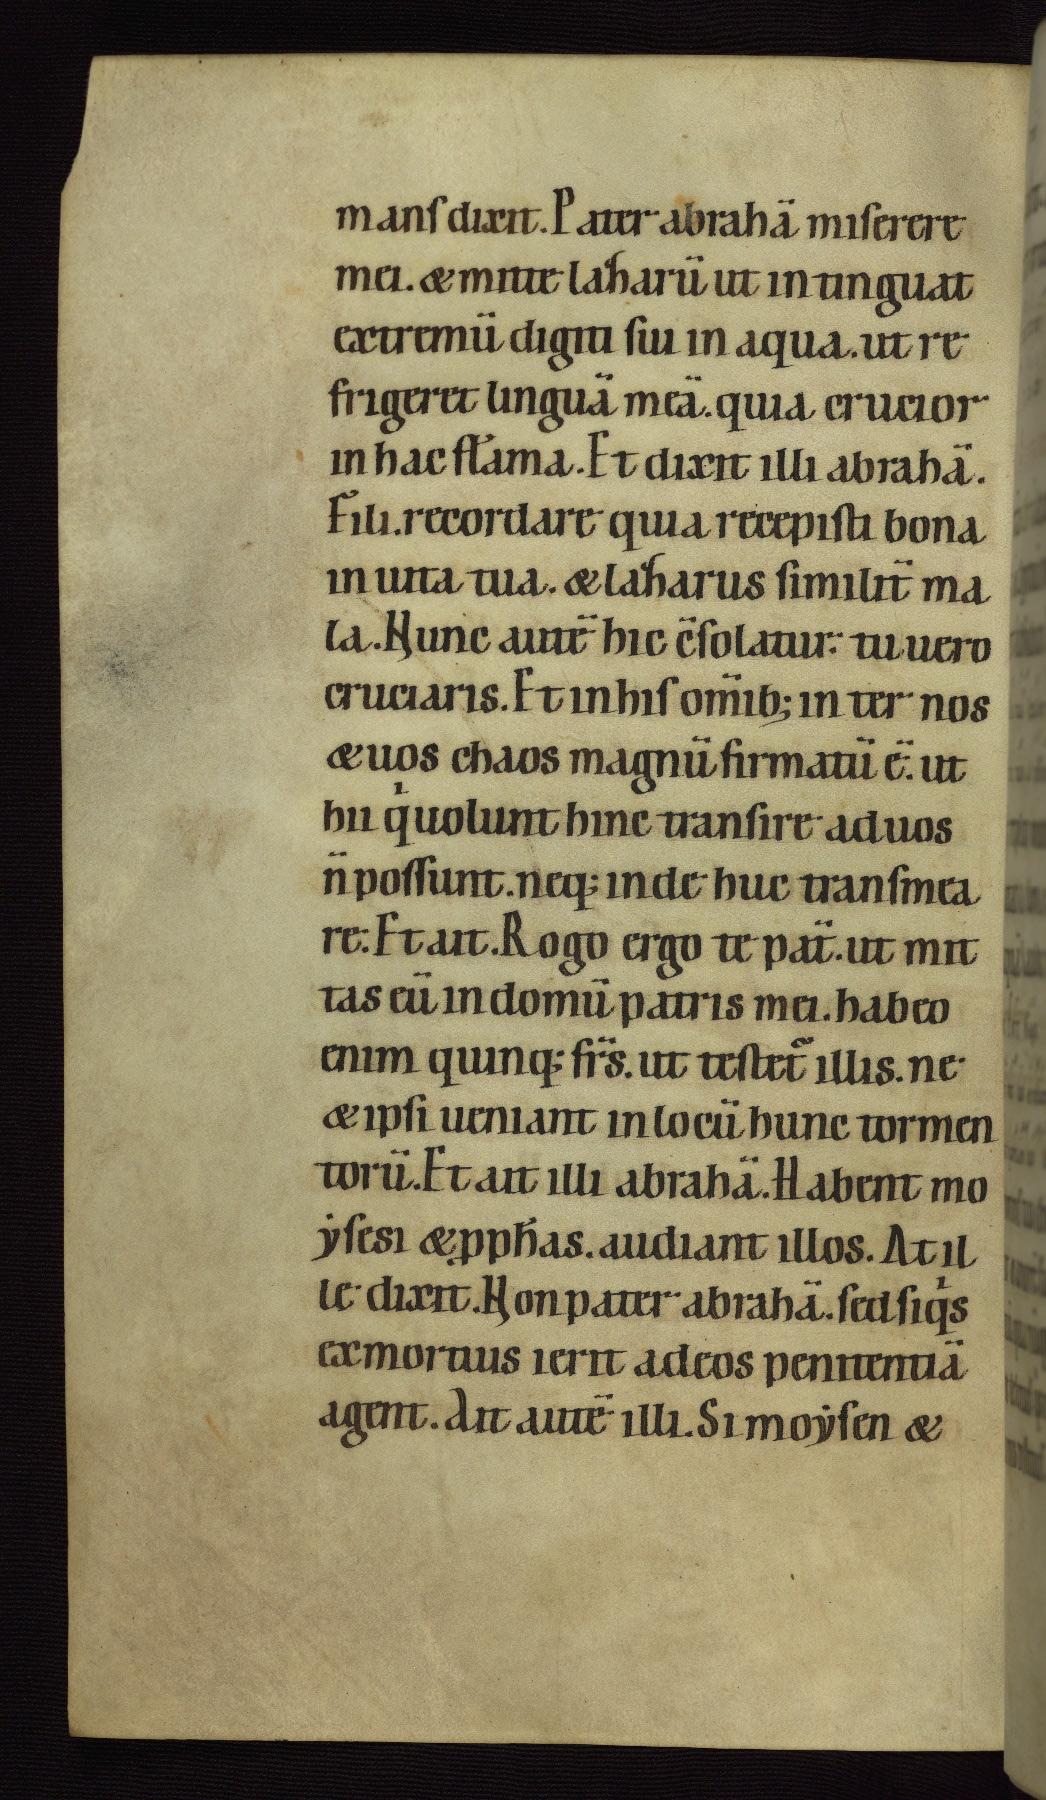 manſ dixit. Pater abrahā miſerere
mei. & mitte laƶarū ut intinguat
extremū digiti ſui in aqua. ut re
frigeret linguā meā. quia crucior
in hac flāma. Et dixit illi abrahā.
Fili. recordare quia recepiſti bona
in uita tua. & laƶarus ſimilit̄ ma
la. Nunc autē hic c̄ſolatur: tu uero
cruciaris. Et in hiſ om̄ib; inter nos
& uos chaos magnū firmatū ē. ut
hii qͥ uolunt hinc tranſire ad uos
n̄ poſſunt. neq; inde huc tranſmea
re. Et ait. Rogo ergo te pat̄. ut mit
tas eū in domū patris mei. habeo
enim quinq; fr̄s. ut teſtet᷑ illis. ne
& ipſi ueniant in locū hunc tormen
torū. Et ait illi abrahā. Habent mo
ẏſesi & ꝓph̄as. audiant illos. At il
le dixit. Non pater abrahā. ſed ſi qͥs
ex mortuus ierit ad eos penitentiā
agent. Ait autē illi. Si moẏſen &